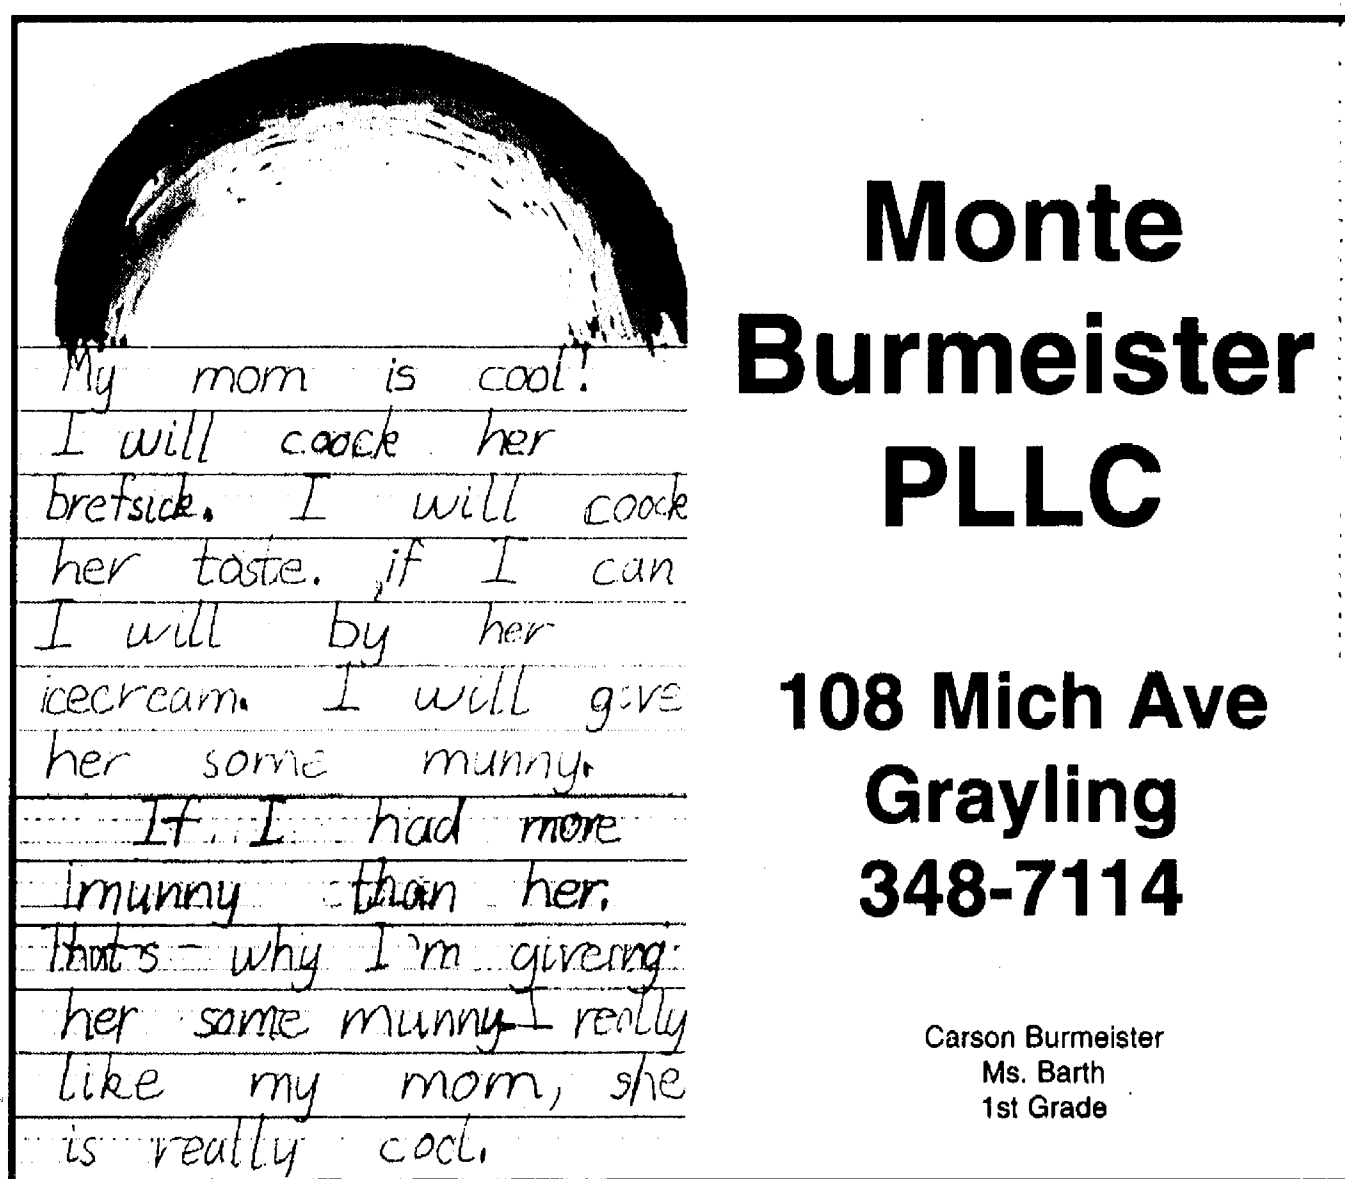 My mom is cool!
I will coock her
brefsick. I will coock
her toste. if I can
I will by her
icecream. I will give
her some munny.
If I had more
munny than her.
that's why I'm giveing
her some munny I really
like my mom, she
is really cool.
Monte
Burmeister
PLLC
108 Mich Ave
Grayling
348-7114
Carson Burmeister
Ms. Barth
1st Grade